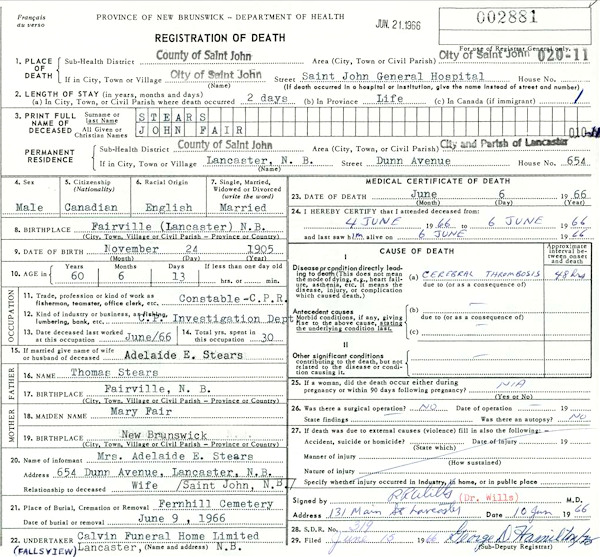 Français
au verso
PROVINCE OF NEW BRUNSWICK – DEPARTMENT OF HEALTH
JUN. 21. 1966
002881
REGISTRATION OF DEATH
For use of Registrar General only.
020-11
1. PLACE OF DEATH
Sub-Health District County of Saint John Area (City, Town, or Civil Parish) City of Saint John
If in City, Town or Village City of Saint John Street Saint John General Hospital House No.
(Name) (If death occurred in a hospital or institution, give the name instead of street and number)
2. LENGTH OF STAY (in years, months and days)
(a) In City, Town, or Civil Parish where death occurred 2 days (b) In Province Life (c) In Canada (if immigrant)
3. PRINT FULL NAME OF DECEASED
Surname or last name STEARS
All Given or Christian Names JOHN FAIR
PERMANENT RESIDENCE
Sub-Health District County of Saint John Area (City, Town, or Civil Parish) City and Parish of Lancaster
If in City, Town or Village Lancaster, N. B. Street Dunn Avenue House No. 654
(Name)
4. Sex Male
5. Citizenship (Nationality) Canadian
6. Racial Origin English
7. Single, Married, Widowed or Divorced (write the word) Married
8. BIRTHPLACE Fairville (Lancaster) N.B.
(City, Town, Village or Civil Parish - Province or Country)
9. DATE OF BIRTH November 24 1905
(Month) (Date) (Year)
10. AGE in Years 60 Months 6 Days 13 If less than one day old hrs. or min.
OCCUPATION
11. Trade, profession or kind of work as fisherman, teamster, office clerk, etc. Constable-C.P.R.
12. Kind of industry or business, as fishing, lumbering, bank, etc. C.P. Investigation Dept
13. Date deceased last worked at this occupation June/66
14. Total yrs. spent in this occupation 30
15. If married give name of wife or husband of deceased Adelaide E. Stears
FATHER
16. NAME Thomas Stears
17. BIRTHPLACE Fairville, N. B.
(City, Town, Village or Civil Parish - Province or Country)
MOTHER
18. MAIDEN NAME Mary Fair
19. BIRTHPLACE New Brunswick
(City, Town, Village or Civil Parish - Province or Country)
20. Name of informant Mrs. Adelaide E. Stears
Address 654 Dunn Avenue, Lancaster, N.B.
Relationship to deceased Wife /Saint John, N.B./
21. Place of Burial, Cremation or Removal Fernhill Cemetery
Date of burial or removal June 9, 1966
22. UNDERTAKER Calvin Funeral Home Limited
(FALLSVIEW) Lancaster, N.B.
(Name and Address)
MEDICAL CERTIFICATE OF DEATH
23. DATE OF DEATH June 6 1966
(Month) (Day) (Year)
24. I HEREBY CERTIFY that I attended deceased from:
4 JUNE 1966 to 6 JUNE 1966
and last saw him alive on 6 JUNE 1966
CAUSE OF DEATH
Approximate interval between onset and death
I
Disease or condition directly leading to death (This does not mean the mode of dying, e.g., heart failure, asthenia, etc. It means the disease, injury, or complication which caused death.)
(a) CEREBRAL THROMBOSIS 48 hrs
due to (or as a consequence of)
Antecedent causes
Morbid conditions, if any, giving rise to the above cause, stating the underlying condition last.
(b)
due to (or as a consequence of)
(c)
II
Other significant conditions contributing to the death, but not related to the disease or condition causing it.
25. If a woman, did the death occur either during pregnancy or within 90 days following pregnancy? N/A
(Yes or No)
26. Was there a surgical operation? NO Date of operation – 19
State findings – Was there an autopsy? NO
27. If death was due to external causes (violence) fill in also the following:
Accident, suicide or homicide? Date of Injury 19
(State which)
Manner of injury
(How sustained)
Nature of injury
Specify whether injury occurred in industry, in home, or in public place
Signed by (Dr. Wills) M.D.
Address 131 Main St Lancaster Date 10 Jun 1966
28. S.D.R. No. 319
29. Filed June 15 1966 George D. Hamilton
(Sub-Deputy Registrar)